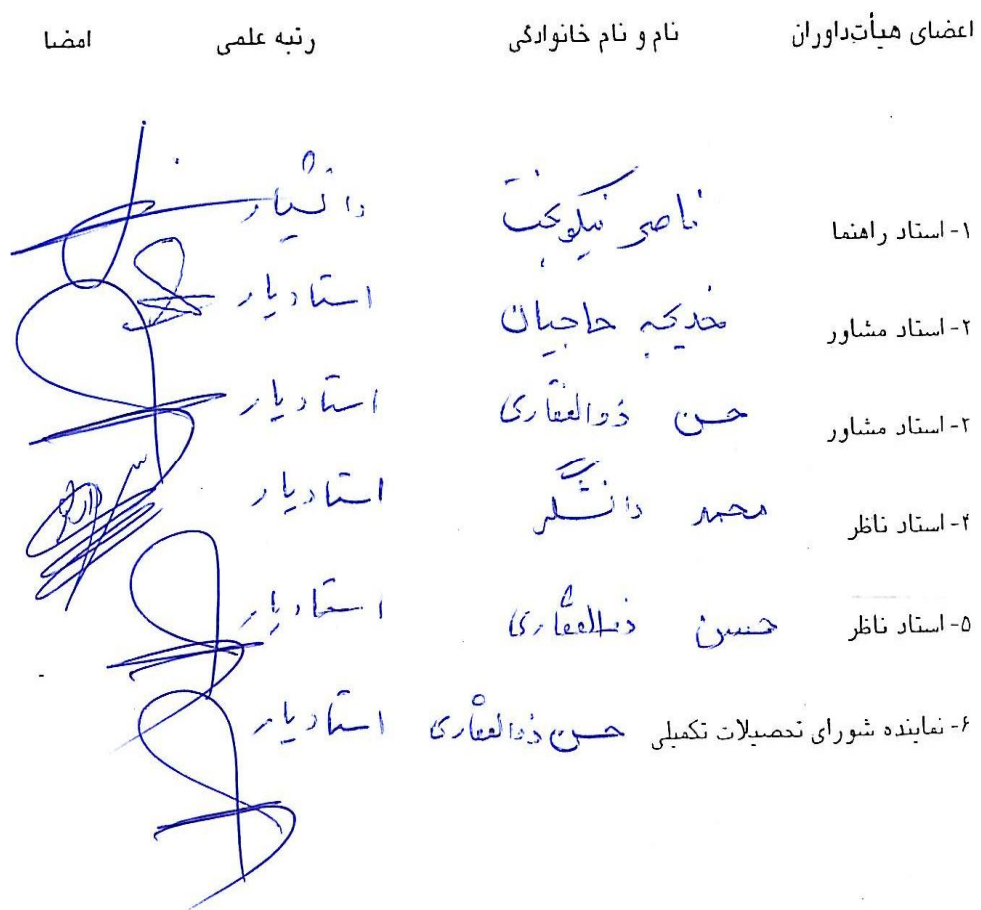 اعضای هیأت‌داوران نام و نام خانوادگی رتبه علمی امضا
۱- استاد راهنما ناصر نیکوبخت دانشیار
۲- استاد مشاور خدیجه حاجیان استادیار
۳- استاد مشاور حسن ذوالفقاری استادیار
۴- استاد ناظر محمد دانشگر استادیار
۵- استاد ناظر حسن ذوالفقاری استادیار
۶- نماینده شورای تحصیلات تکمیلی حسن ذوالفقاری استادیار